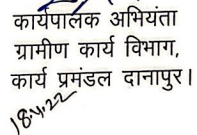 कार्यपालक अभियंता
ग्रामीण कार्य विभाग,
कार्य प्रमंडल दानापुर।
18.4.22